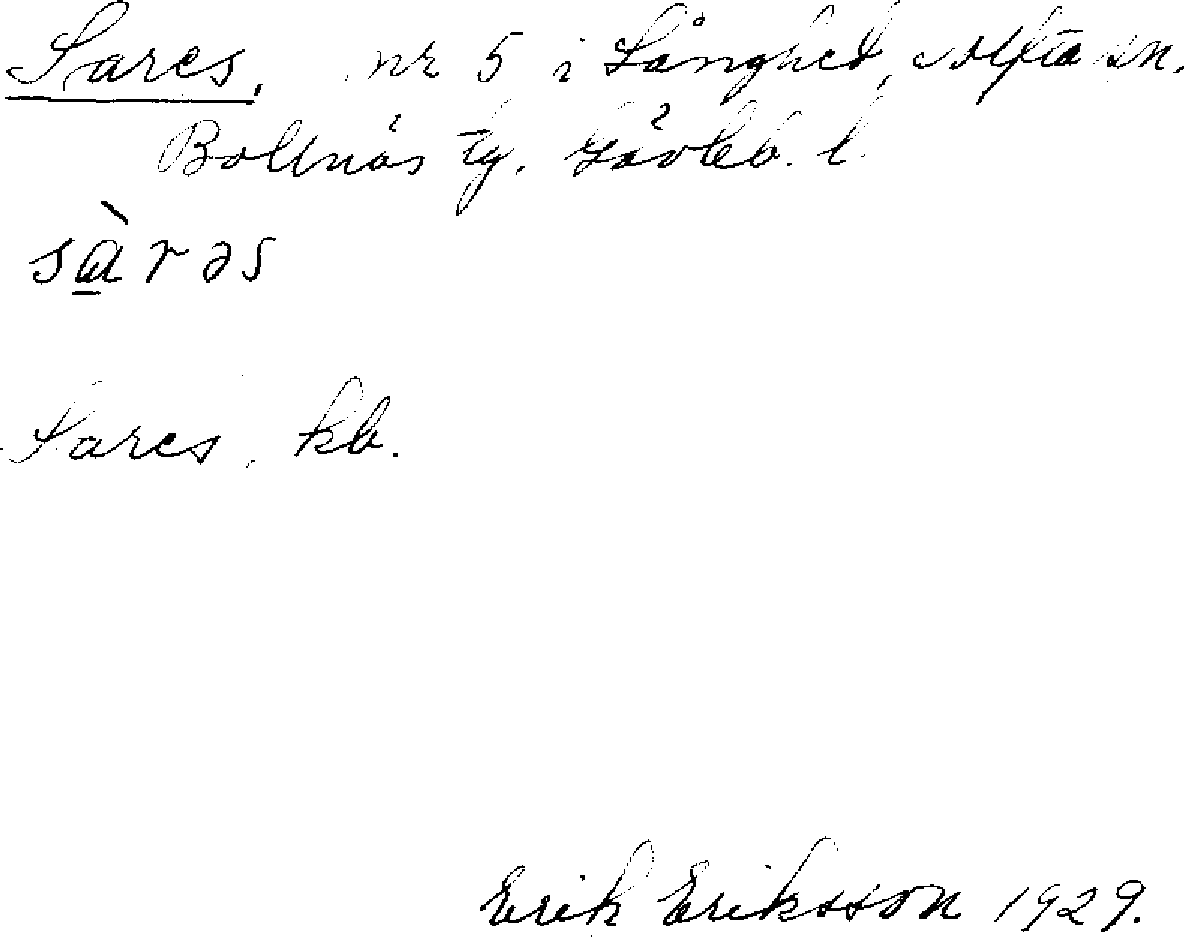 Sares, nr 5 i Långhed, Alfta sn.
Bollnäs tg. Gävleb. l.
sàrəs
Sares, kb.
Erik Eriksson 1929.